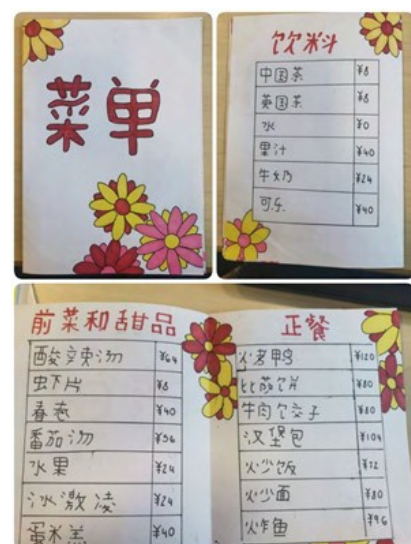 菜单
饮料
中国茶 ¥8
英国茶 ¥8
水 ¥0
果汁 ¥40
牛奶 ¥24
可乐 ¥40
前菜和甜品
酸辣汤 ¥64
虾片 ¥8
春卷 ¥40
番茄汤 ¥56
水果 ¥24
冰激凌 ¥24
蛋米羔 ¥40
正餐
火考鸭 ¥120
比萨饼 ¥80
牛肉饺子 ¥80
汉堡包 ¥104
炒饭 ¥72
炒面 ¥80
炸鱼 ¥96